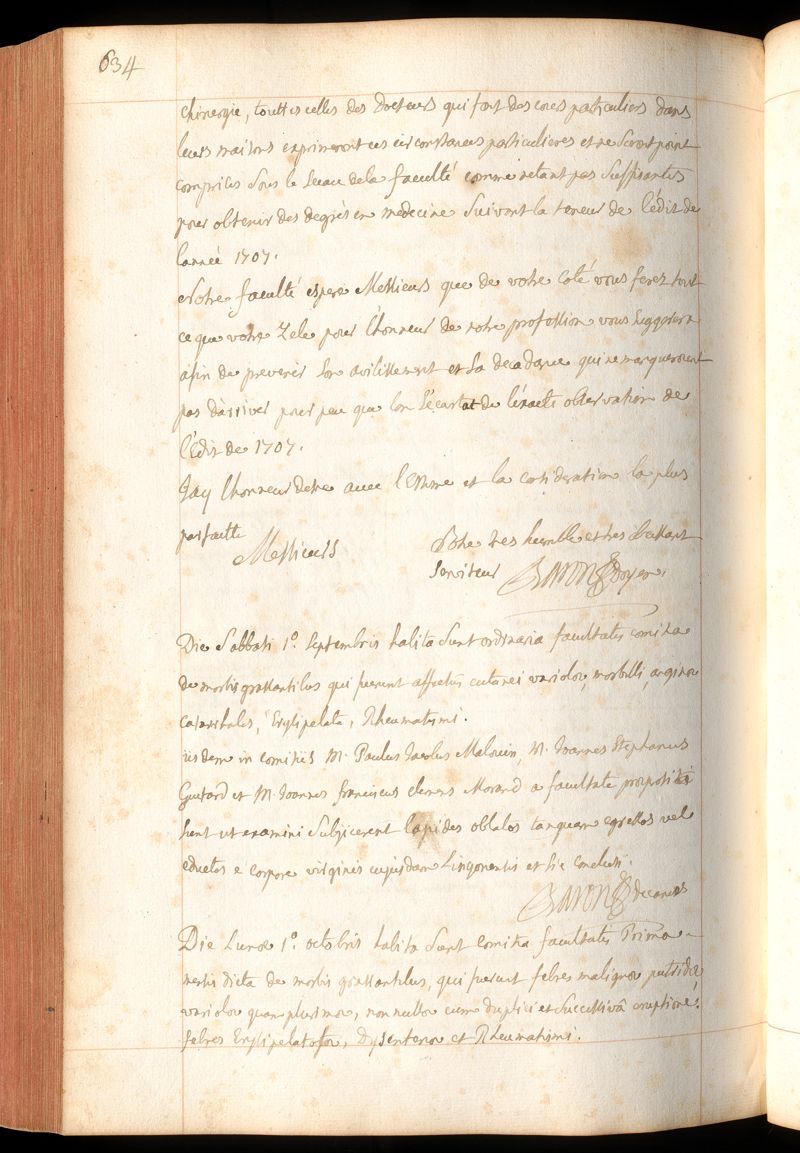 634
chirurgie, touttes celles des docteurs qui font des cours particuliers dans
leurs maisons exprimeront ces circonstances particulieres et ne seront point
comprises sous le sceau dela faculté comme netant pas suffisantes
pour obtenir des degrés en medecine suivant la teneur de l'édit de
lannée 1707.
Notre faculté espere Messieurs que de votre coté vous ferez tout
ce que votre zele pour l'honneur de notre profession vous suggerera
afin de prevenir son avilissement et sa decadence qui ne manqueroient
pas d'arriver pour peu que lon s'ecartat de l'exacte observation de
l'Edit de 1707.
Jay l'honneur detre avec l'estime et la consideration la plus
parfaitte
Messieurs
Votre tres humble et tres obeissant
serviteur BARON doyen.
Die Sabbati 1º. Septembris habita sunt ordinaria facultatis comitia
de morbis grassantibus qui fuerunt affectus cutanei variolæ, morbilli, anginæ
catarrhales, Erysipelata, Rheumatismi.
iisdem in comitiis M. Paulus Jacobus Malouin, M. Joannes Stephanus
Guetard et M. Joannes franciscus clemens Morand a facultate præpositi
sunt ut examini subjicerent lapides oblatos tanquam egressos vel
eductos e corpore virginis cujusdam Lingonensis et sic conclusi.
BARON decanus
Die Lunæ 1º. octobris habita sunt comitia facultatis Prima
mensis dicta de morbis grassantibus, qui fuerunt febres malignæ putridæ,
variolæ quam plurimæ, non nullæ cum duplici et successivâ eruptione,
febres Erysipelatosæ, Dysenteriæ et Rheumatismi.